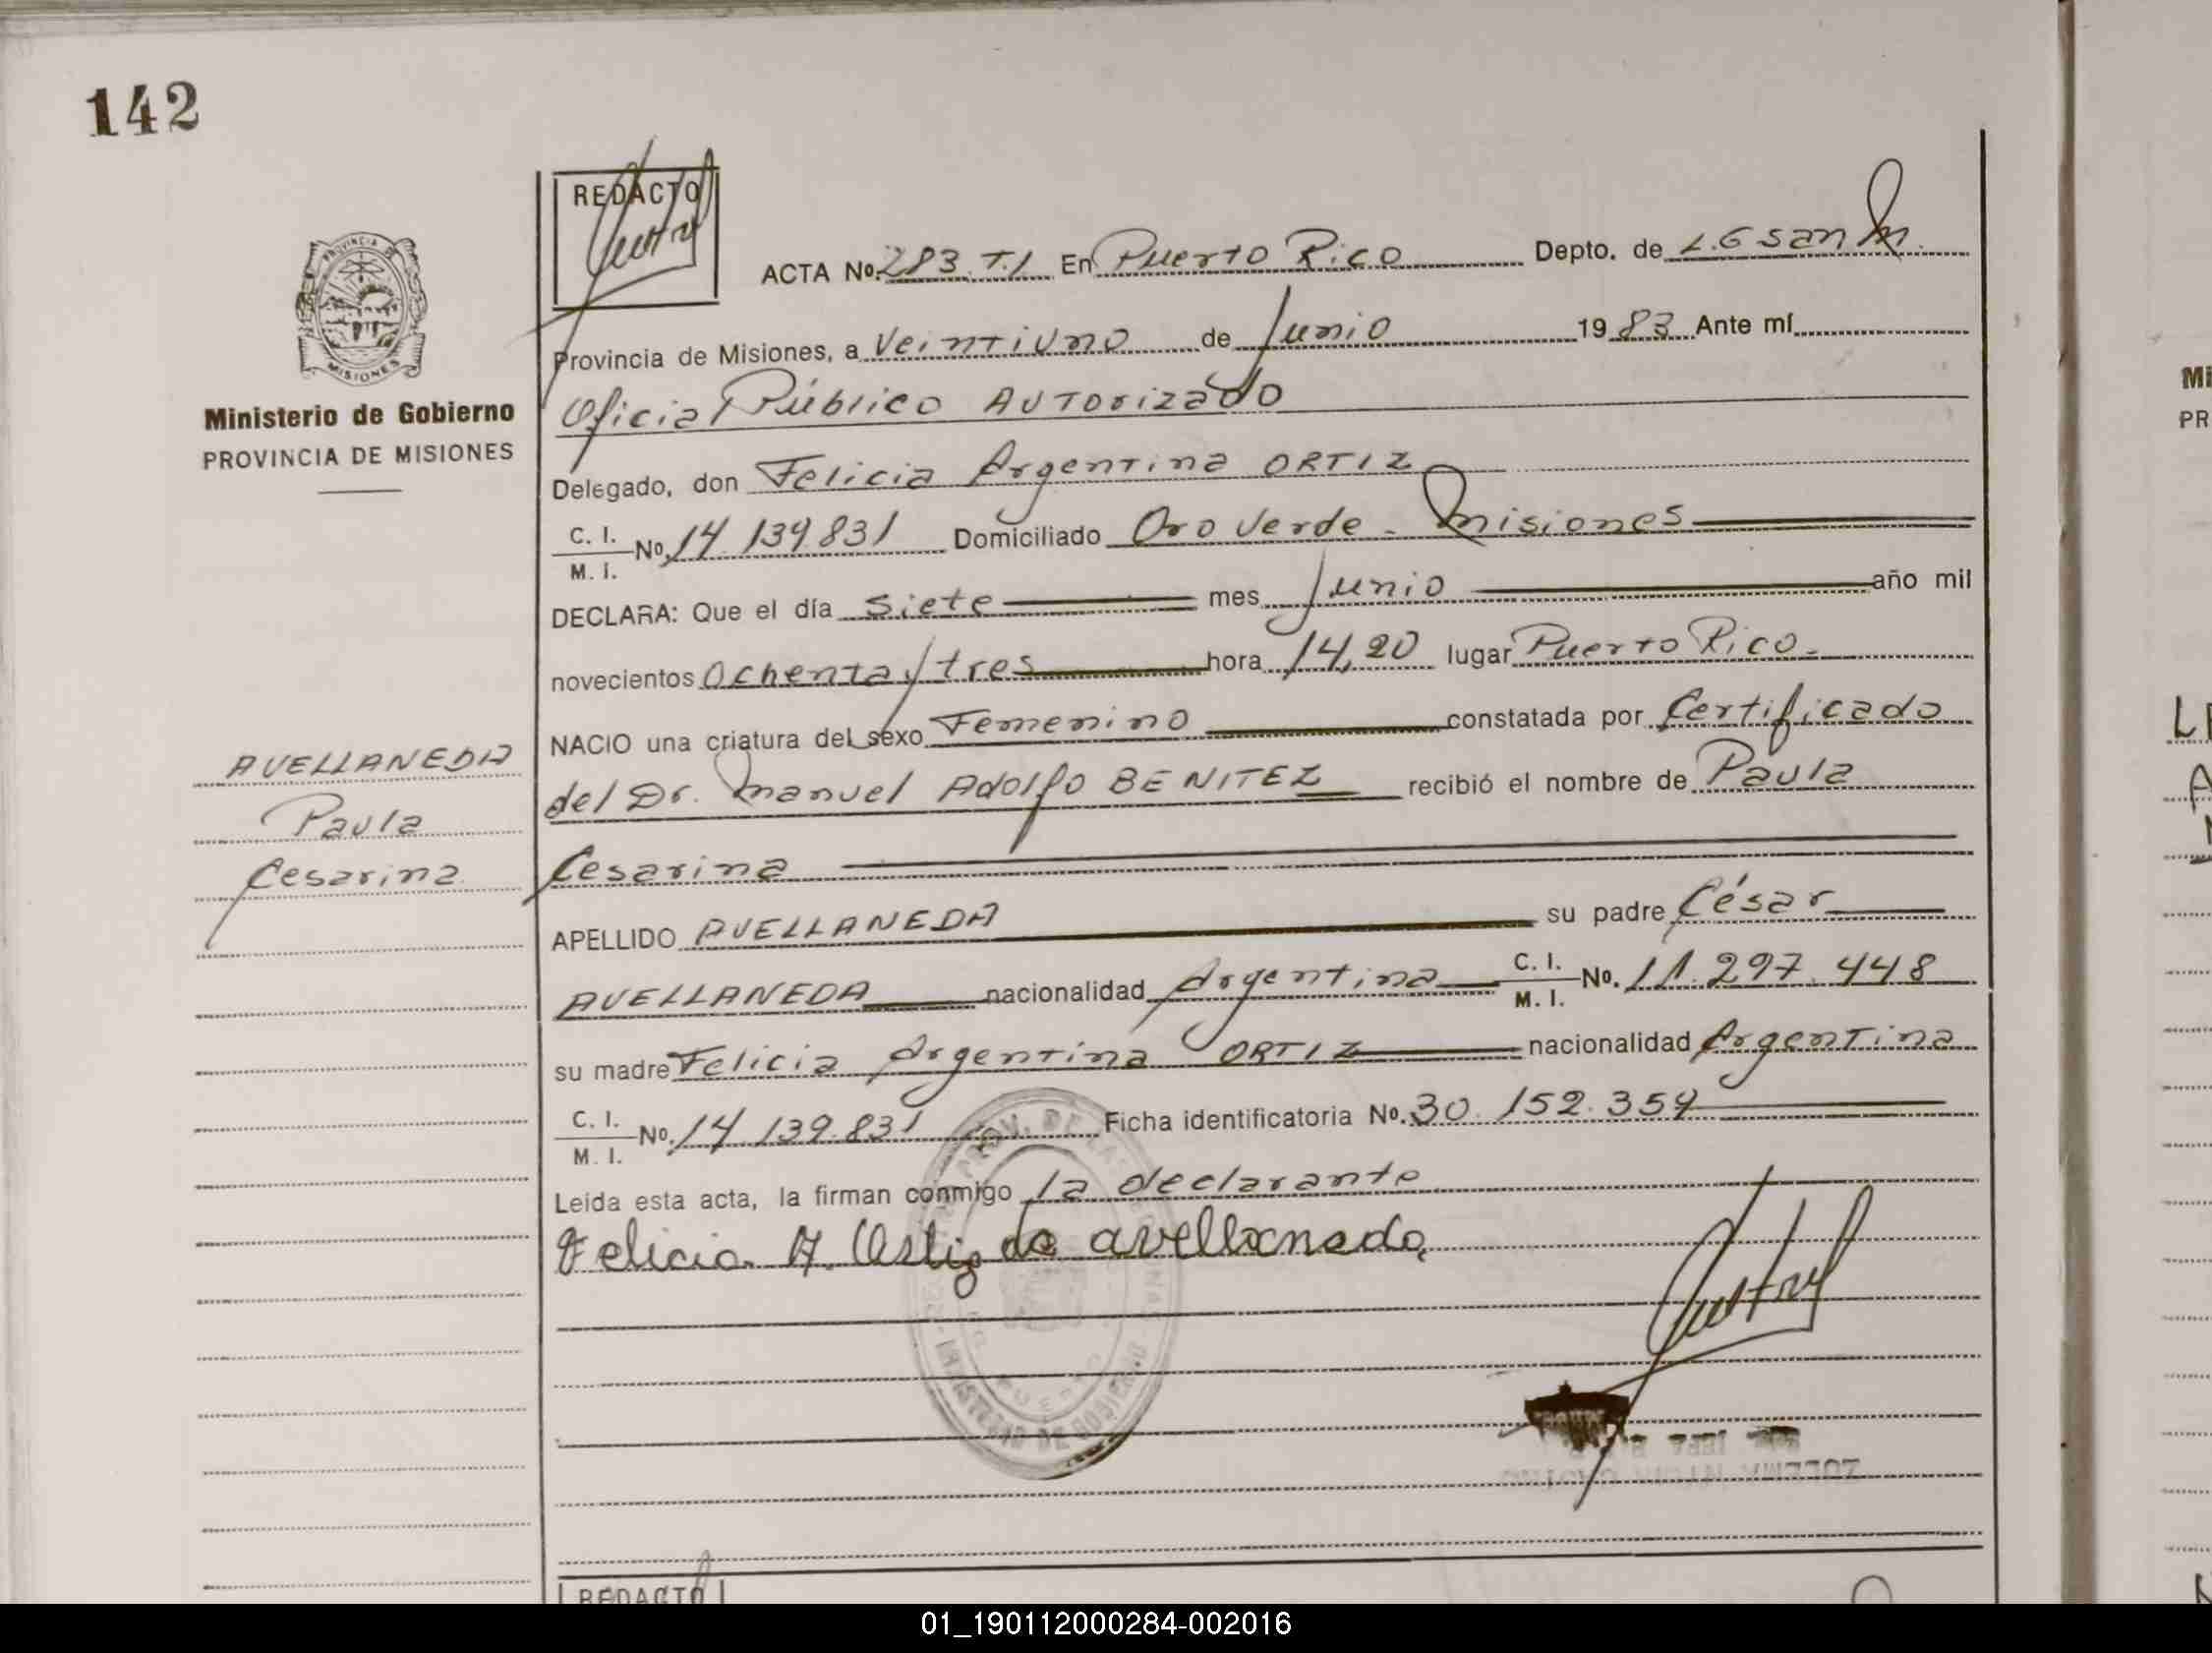 142
REDACTO
ACTA No. 283 T.I En Puerto Rico Depto. de L.G San M.
Provincia de Misiones, a Veintiuno de Junio 1983 Ante mí
Oficial Público Autorizado
PROVINCIA DE
MISIONES
Ministerio de Gobierno
PROVINCIA DE MISIONES
Delegado, don Felicia Argentina ORTIZ
C. I.
M. I. No. 14 139.831 Domiciliado Oro Verde - Misiones
DECLARA: Que el día siete mes Junio año mil
novecientos Ochenta y tres hora 14,20 lugar Puerto Rico.
NACIO una criatura del sexo Femenino constatada por Certificado
del Dr. Manuel Adolfo BENITEZ recibió el nombre de Paula
Cesarina
AVELLANEDA
Paula
Cesarina
APELLIDO AVELLANEDA su padre César
AVELLANEDA nacionalidad Argentina C. I.
M. I. No. 11.297.448
su madre Felicia Argentina ORTIZ nacionalidad Argentina
C. I.
M. I. No. 14.139.831 Ficha identificatoria No. 30.152.359
Leida esta acta, la firman conmigo la declarante
Felicia A. Ortiz de avellaneda
MINISTERIO DE GOBIERNO
REDACTO
Mi
PR
01_190112000284-002016